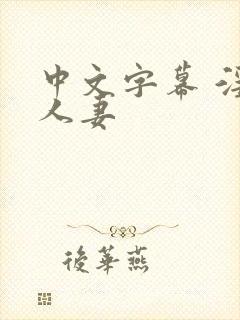 中文字幕
人妻
後華燕